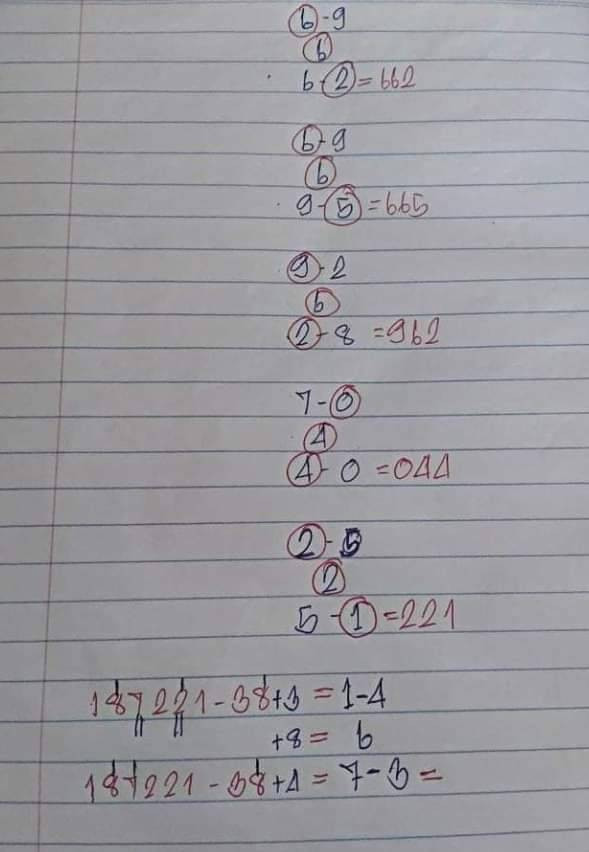 6-9
6
6-2=662
6-9
6
9-5=665
9-2
6
2-8=962
7-0
4
4-0=044
2-5
2
5-1=221
187221-38+3=1-4
+8=6
187221-38+4=7-3=